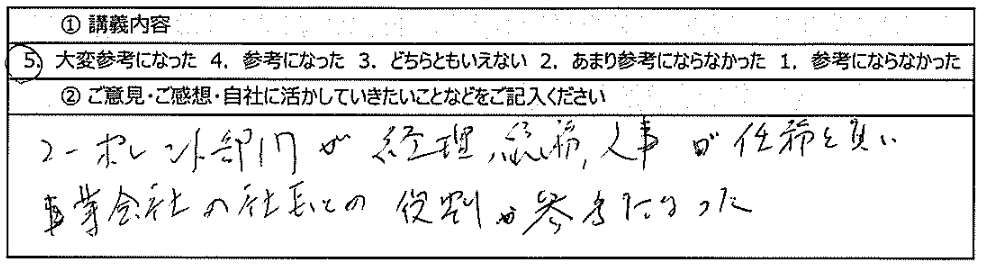 ① 講義内容
5. 大変参考になった 4. 参考になった 3. どちらともいえない 2. あまり参考にならなかった 1. 参考にならなかった
② ご意見・ご感想・自社に活かしていきたいことなどをご記入ください
コーポレント部門が経理、総務、人事が任務を負い
事業会社の社長との役割が参考になった